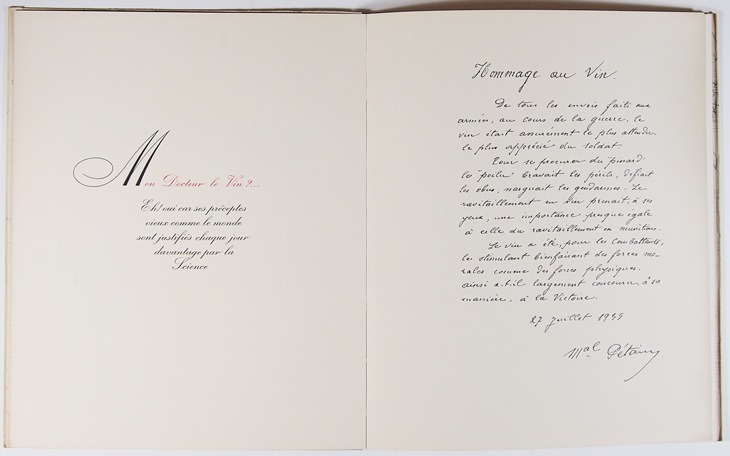 Mon Docteur le Vin ?...
Eh! oui car ses préceptes
vieux comme le monde
sont justifiés chaque jour
davantage par la
Science
Hommage au Vin.
De tous les envois faits aux
armées, au cours de la guerre, le
vin était assurément le plus attendu,
le plus apprécié du soldat.
Pour se procurer du pinard
les "poilu" bravait les périls, défiait
les obus, narguait les gendarmes. Le
ravitaillement en vin prenait, à ses
yeux, une importance presque égale
à celle du ravitaillement en munitions.
Le vin a été, pour les combattants,
le stimulant bienfaisant des forces mo-
rales comme des forces physiques.
Ainsi a-t-il largement concouru, à sa
manière, à la Victoire.
27 Juillet
Mal Pétain